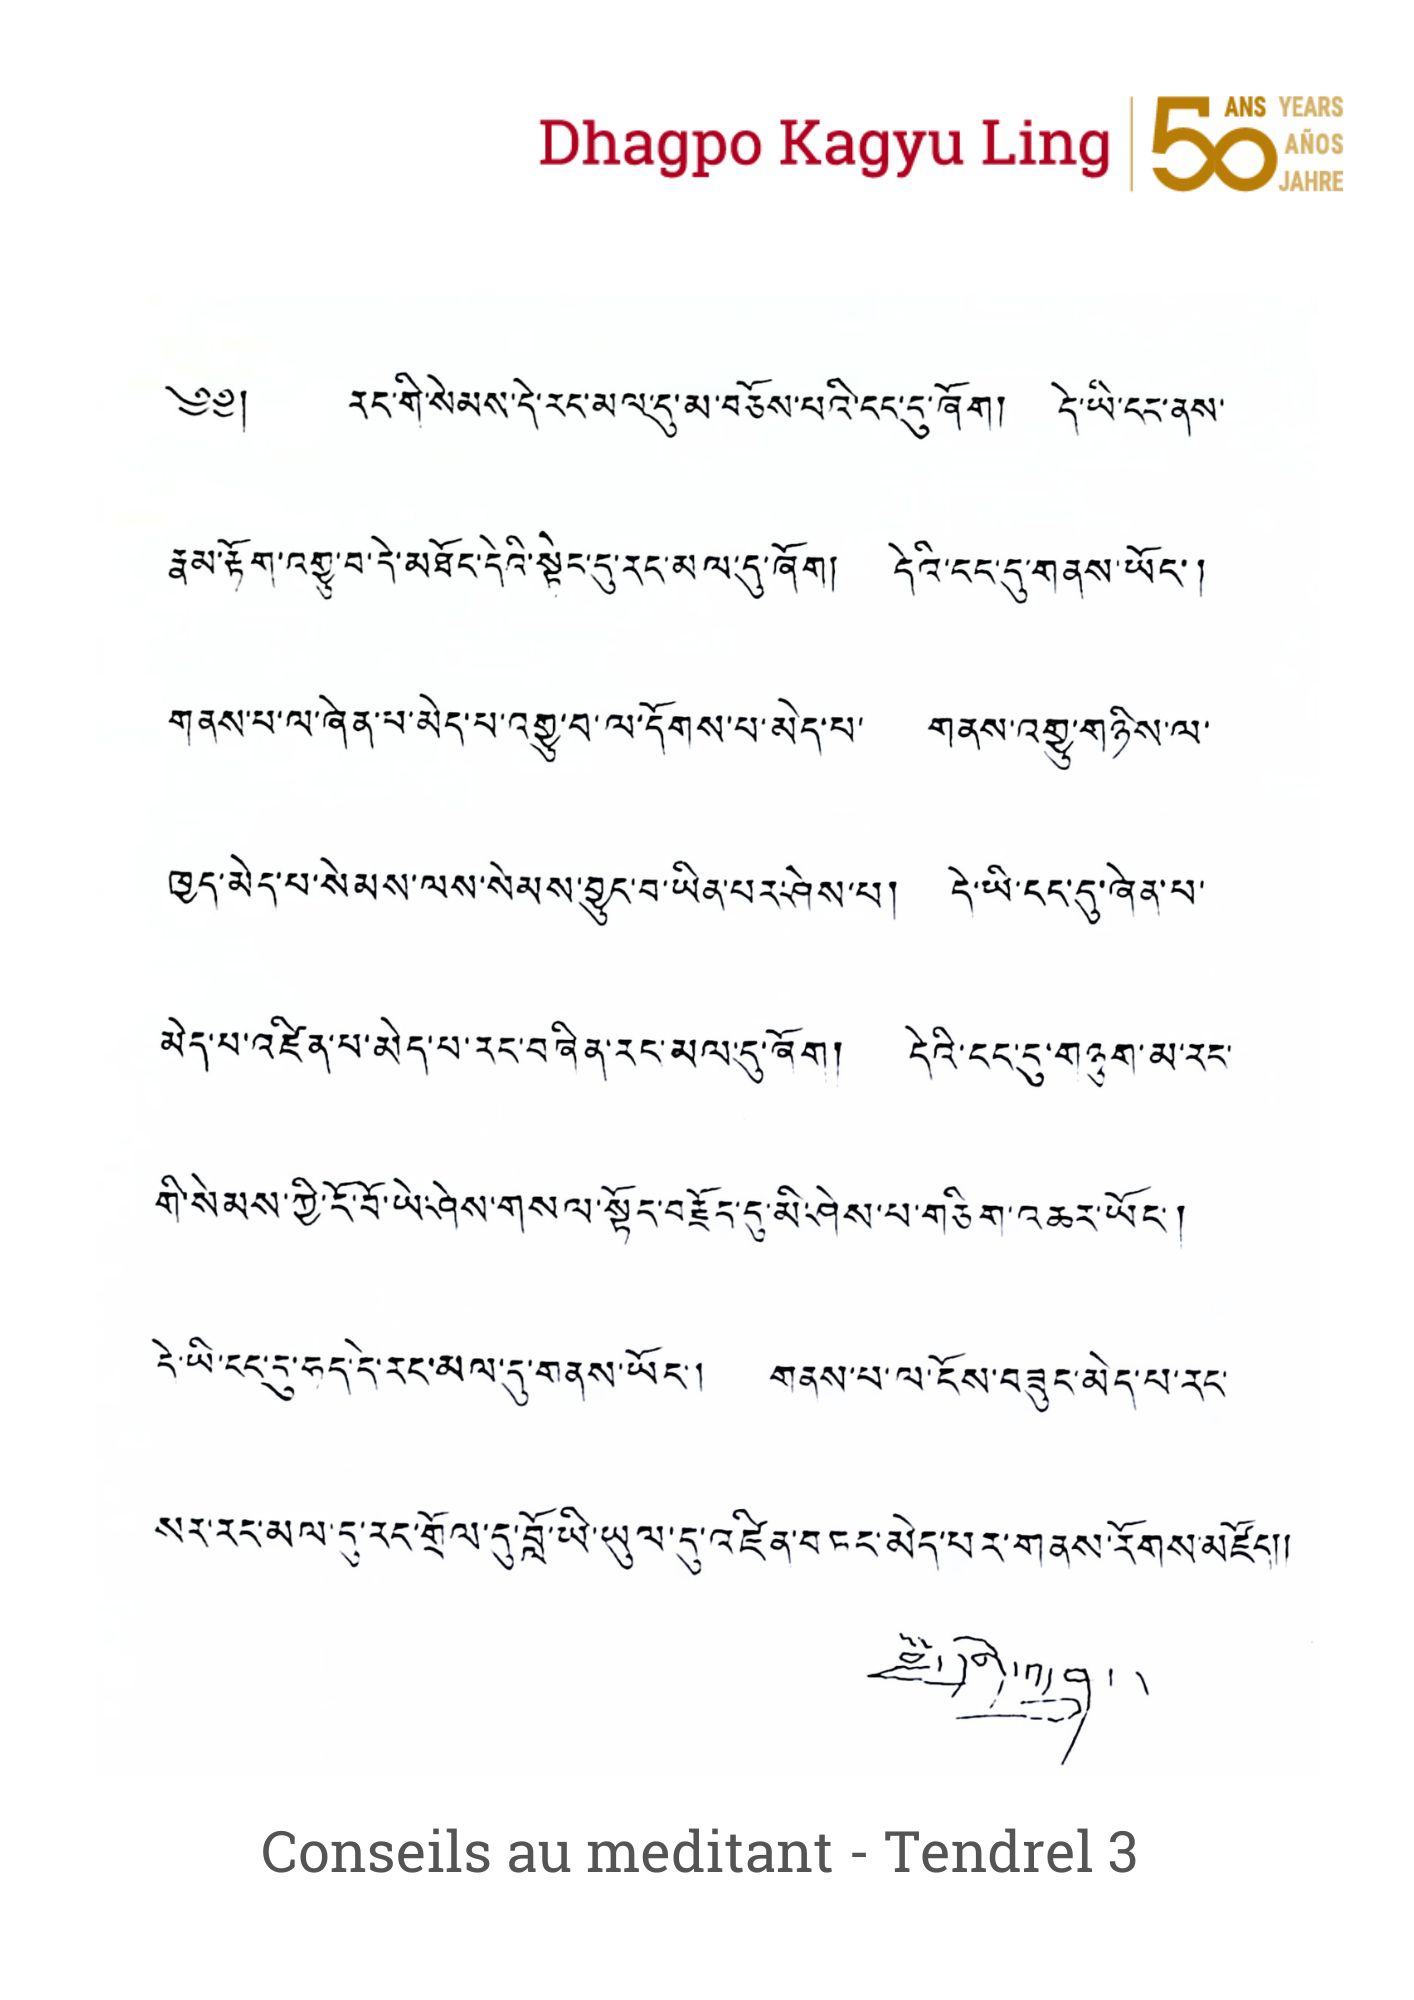 Dhagpo Kagyu Ling
50 ANS YEARS
AÑOS
JAHRE
༄༅། རང་གི་སེམས་དེ་རང་མལ་དུ་མ་བཅོས་པའི་ངང་དུ་ཞོག། དེ་ཡི་ངང་ནས་
རྣམ་རྟོག་འགྱུ་བ་དེ་མཐོང་དེའི་སྟེང་དུ་རང་མལ་དུ་ཞོག། དེའི་ངང་དུ་གནས་ཡོང་།
གནས་པ་ལ་ཞེན་པ་མེད་པ་འགྱུ་བ་ལ་དོགས་པ་མེད་པ་ གནས་འགྱུ་གཉིས་ལ་
ཁྱད་མེད་པ་སེམས་ལས་སེམས་བྱུང་བ་ཡིན་པར་ཤེས་པ། དེ་ཡི་ངང་དུ་ཞེན་པ་
མེད་པ་འཛིན་པ་མེད་པ་རང་བཞིན་རང་མལ་དུ་ཞོག། དེའི་ངང་དུ་གཉུག་མ་རང་
གི་སེམས་ཀྱི་ངོ་བོ་ཡེ་ཤེས་གསལ་སྟོང་བརྗོད་དུ་མི་ཤེས་པ་གཅིག་འཆར་ཡོང་།
དེ་ཡི་ངང་དུ་ཧད་དེ་རང་མལ་དུ་གནས་ཡོང་། གནས་པ་ལ་ངོས་བཟུང་མེད་པ་རང་
སར་རང་མལ་དུ་རང་གྲོལ་དུ་བློ་ཡི་ཡུལ་དུ་འཛིན་བཏང་མེད་པར་གནས་རོགས་མཛོད།།
Conseils au meditant - Tendrel 3